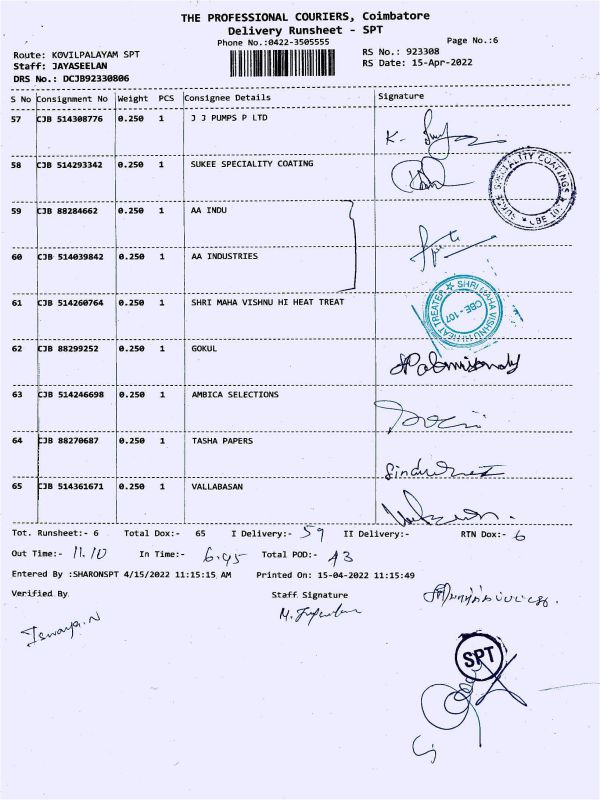 THE PROFESSIONAL COURIERS, Coimbatore
Delivery Runsheet - SPT
Phone No.:0422-3505555
Page No.:6
Route: KOVILPALAYAM SPT
RS No.: 923308
Staff: JAYASEELAN
RS Date: 15-Apr-2022
DRS No.: DCJB92330806
S No Consignment No Weight PCS Consignee Details Signature
57 CJB 514308776 0.250 1 J J PUMPS P LTD
58 CJB 514293342 0.250 1 SUKEE SPECIALITY COATING
SUKEE SPECIALITY COATINGS * CBE 107 *
59 CJB 88284662 0.250 1 AA INDU
60 CJB 514039842 0.250 1 AA INDUSTRIES
61 CJB 514260764 0.250 1 SHRI MAHA VISHNU HI HEAT TREAT
SHRI MAHA VISHNU HI HEAT TREATER CBE - 107
62 CJB 88299252 0.250 1 GOKUL
63 CJB 514246698 0.250 1 AMBICA SELECTIONS
64 CJB 88270687 0.250 1 TASHA PAPERS
65 CJB 514361671 0.250 1 VALLABASAN
Tot. Runsheet:- 6 Total Dox:- 65 I Delivery:- 59 II Delivery:- RTN Dox:- 6
Out Time:- 11.10 In Time:- 6.45 Total POD:- 43
Entered By :SHARONSPT 4/15/2022 11:15:15 AM Printed On: 15-04-2022 11:15:49
Verified By Staff Signature
SPT